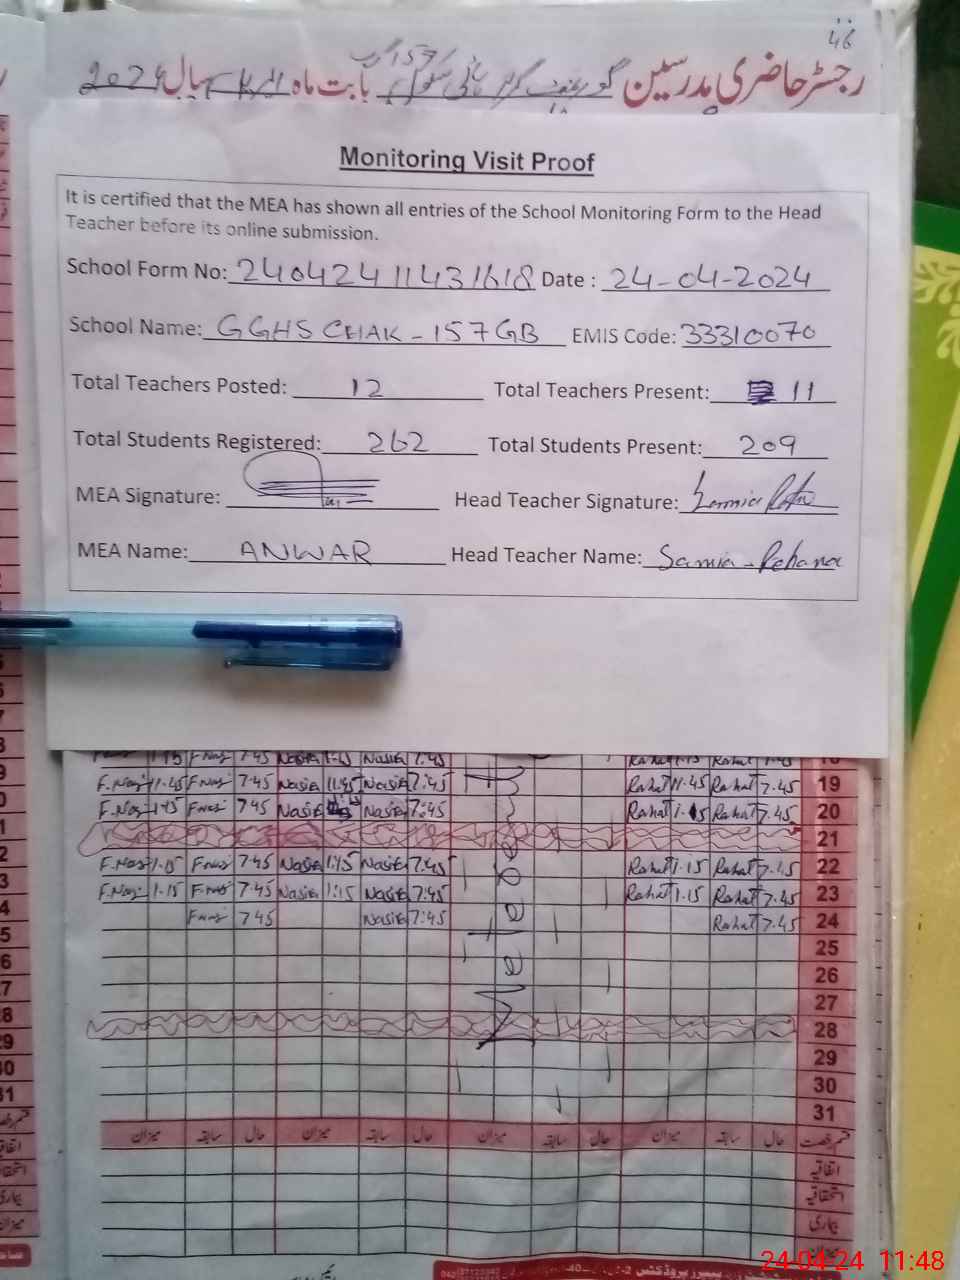 46
رجسٹر حاضری مدرسین گورنمنٹ گرلز ہائی سکول 157 گ ب بابت ماہ اپریل سال 2024
Monitoring Visit Proof
It is certified that the MEA has shown all entries of the School Monitoring Form to the Head
Teacher before its online submission.
School Form No: 24042411431618 Date : 24-04-2024
School Name: GGHS CHAK - 157GB EMIS Code: 33310070
Total Teachers Posted: 12 Total Teachers Present: 11
Total Students Registered: 262 Total Students Present: 209
MEA Signature: Head Teacher Signature:
MEA Name: ANWAR Head Teacher Name: Samia - Rehana
1.15 F.naz 7.45 Nasia Nasia 7.45 Rahat 1.15 Rahat 18
F.Naz 11.45 F.naz 7.45 Nasia 11.45 Nasia 7:45 Rahat 11.45 Rahat 7.45 19
F.Naz 1.15 F.naz 7.45 Nasia Nasia 7:45 Rahat 1.15 Rahat 7.45 20
21
F.Naz 1.15 F.naz 7.45 Nasia 1:15 Nasia 7:45 Rahat 1.15 Rahat 7.45 22
F.Naz 1.15 F.naz 7.45 Nasia 1:15 Nasia 7:45 Rahat 1.15 Rahat 7.45 23
F.naz 7.45 Nasia 7:45 Rahat 7.45 24
25
26
27
28
29
30
31
قسم رخصت حال سابقہ میزان حال سابقہ میزان حال سابقہ میزان حال سابقہ میزان
اتفاقیہ
استحقاقیہ
بیماری
میزان
24-04-24 11:48